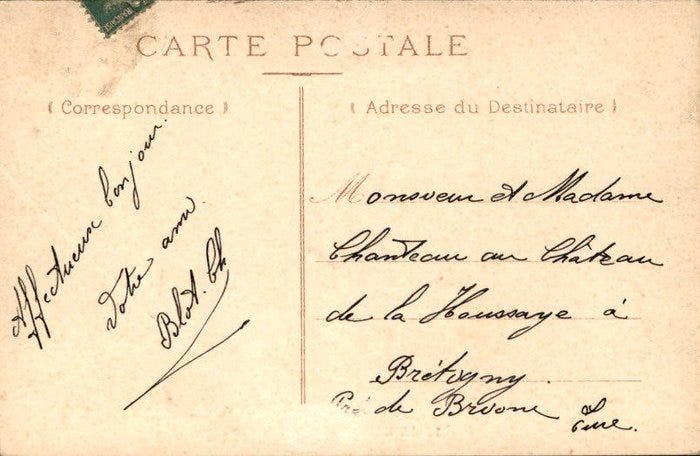 CARTE POSTALE
( Correspondance )
( Adresse du Destinataire )
Affectueux bonjour.
Votre ami.
Blot. Ch
Monsieur et Madame
Chanteau au Château
de la Houssaye à
Brétigny.
Près de Brionne Eure.